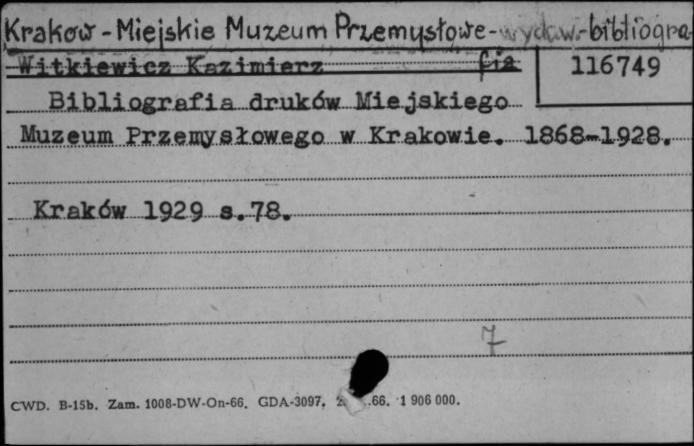 Kraków - Miejskie Muzeum Przemysłowe - wydaw. - bibliogra-
Witkiewicz Kazimierz fia 116749
Bibliografia druków Miejskiego
Muzeum Przemysłowego w Krakowie. 1868-1928.
Kraków 1929 s.78.
7
CWD. B-15b. Zam. 1008-DW-On-66. GDA-3097. .66. 1 906 000.